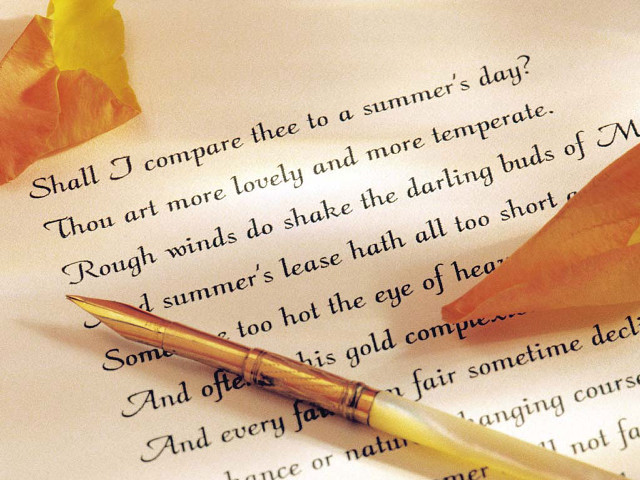 Shall I compare thee to a summer's day?
Thou art more lovely and more temperate.
Rough winds do shake the darling buds of M
d summer's lease hath all too short
too hot the eye of
And his gold
And every fair sometime decli
or changing course
not fa